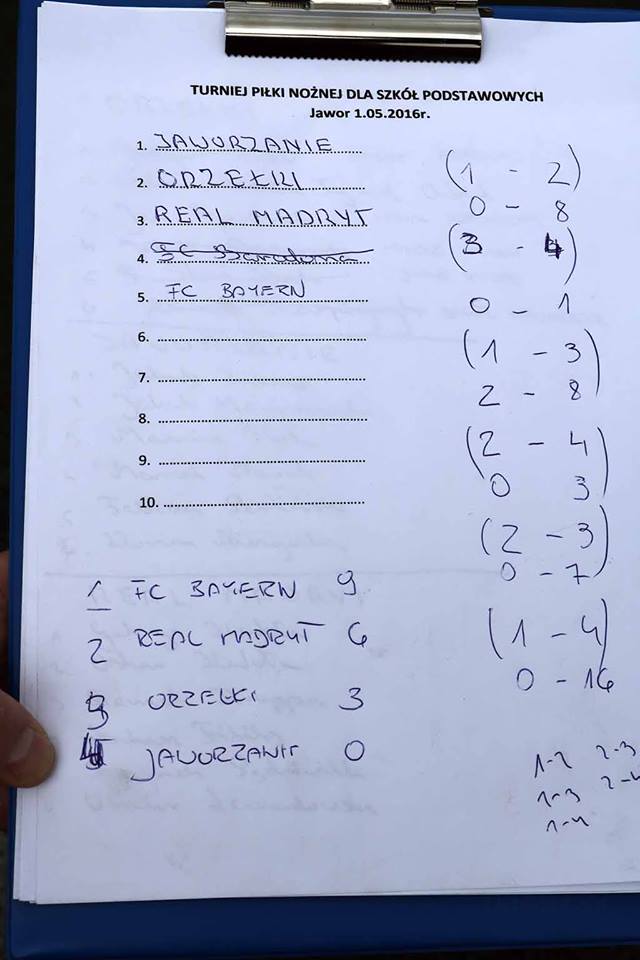 TURNIEJ PIŁKI NOŻNEJ DLA SZKÓŁ PODSTAWOWYCH
Jawor 1.05.2016r.
1. JAWORZANIE
2. ORZEŁKI
3. REAL MADRYT
4. FC
5. FC BAYERN
6.
7.
8.
9.
10.
(1 - 2)
0 - 8
(3 - 4)
0 - 1
(1 - 3)
2 - 8
(2 - 4)
0 3
(2 - 3)
0 - 7
(1 - 4)
0 - 16
1 FC BAYERN 9
2 REAL MADRYT 6
3 ORZEŁKI 3
4 JAWORZANIE 0
1-2 2-3
1-3 2-4
1-4